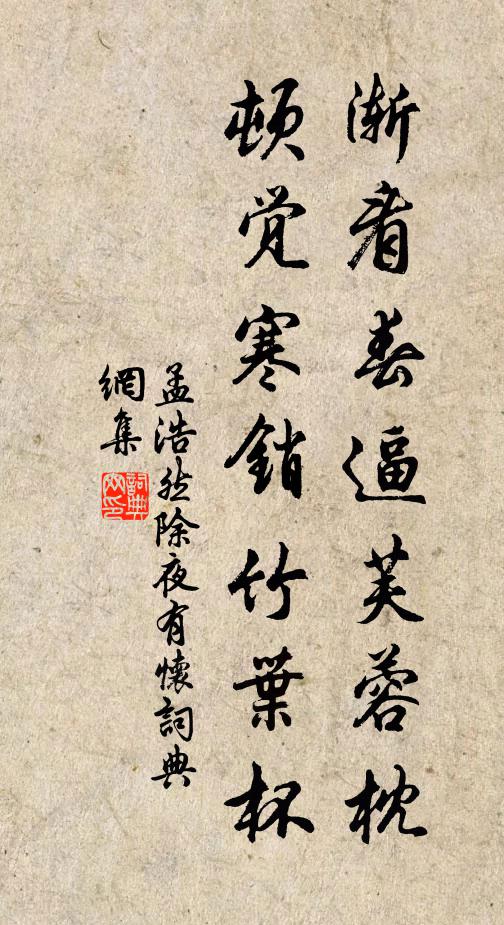 渐看春逼芙蓉枕
顿觉寒销竹葉杯
孟浩然除夜有懷詞典
網集
詞典
网印